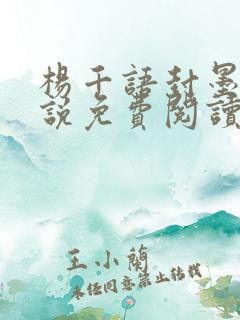 楊千語封墨
說免費閱讀
王小蘭
未經同意禁止轉載